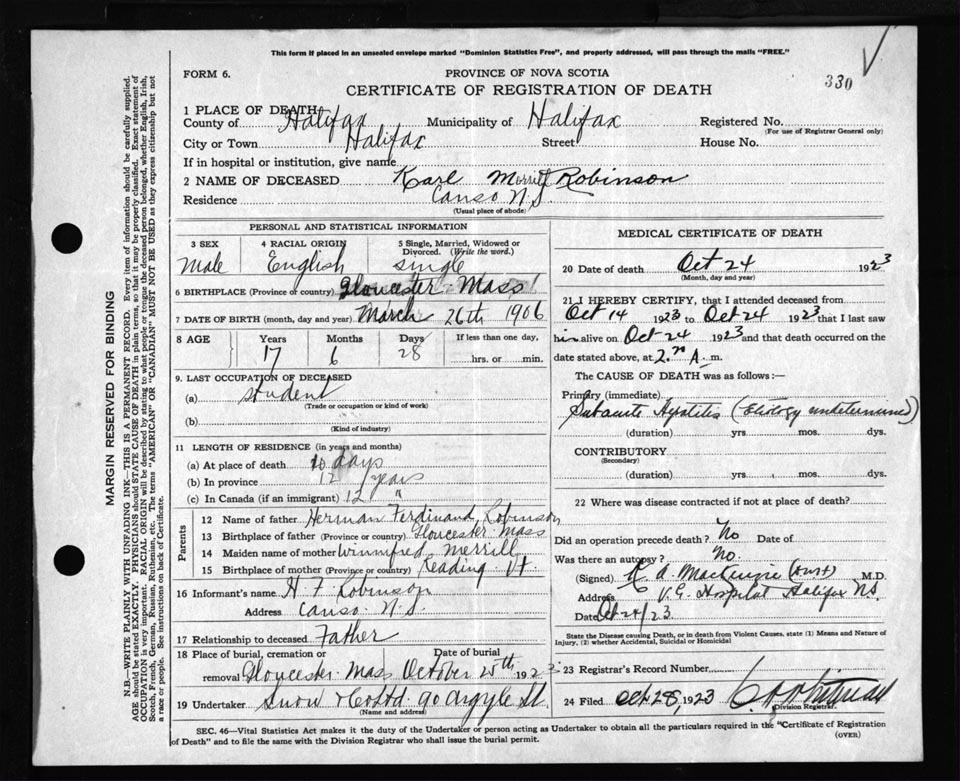 This form if placed in an unsealed envelope marked "Dominion Statistics Free", and properly addressed, will pass through the mails "FREE."
FORM 6.
PROVINCE OF NOVA SCOTIA
330
CERTIFICATE OF REGISTRATION OF DEATH
1 PLACE OF DEATH
County of Halifax Municipality of Halifax Registered No.
(For use of Registrar General only)
City or Town Halifax Street House No.
If in hospital or institution, give name
2 NAME OF DECEASED Karl Merrill Robinson
Residence Canso N.S.
(Usual place of abode)
PERSONAL AND STATISTICAL INFORMATION
3 SEX 4 RACIAL ORIGIN 5 Single, Married, Widowed or Divorced. (Write the word.)
Male English single
6 BIRTHPLACE (Province or country) Gloucester Mass
7 DATE OF BIRTH (month, day and year) March 26th 1906
8 AGE Years Months Days If less than one day,
17 6 28 hrs. or min.
9. LAST OCCUPATION OF DECEASED
(a) student
(Trade or occupation or kind of work)
(b)
(Kind of industry)
11 LENGTH OF RESIDENCE (in years and months)
(a) At place of death 10 days
(b) In province 12 years
(c) In Canada (if an immigrant) 12 "
Parents
12 Name of father Herman Ferdinand Robinson
13 Birthplace of father (Province or country) Gloucester Mass
14 Maiden name of mother Winnifred Merrill
15 Birthplace of mother (Province or country) Reading Vt.
16 Informant's name H F Robinson
Address Canso N.S.
17 Relationship to deceased Father
18 Place of burial, cremation or removal Date of burial
Gloucester Mass October 25th 1923
19 Undertaker Snow & Co Ltd 90 Argyle St.
(Name and address)
MEDICAL CERTIFICATE OF DEATH
20 Date of death Oct 24 1923
(Month, day and year)
21 I HEREBY CERTIFY, that I attended deceased from
Oct 14 1923 to Oct 24 1923 that I last saw
him alive on Oct 24 1923 and that death occurred on the
date stated above, at 2 A. m.
The CAUSE OF DEATH was as follows:—
Primary (immediate)
Subacute Hepatitis (Etiology undetermined)
(duration) yrs. mos. dys.
CONTRIBUTORY
(Secondary)
(duration) yrs. mos. dys.
22 Where was disease contracted if not at place of death?
Did an operation precede death? No Date of
Was there an autopsy? No.
(Signed) A. MacKenzie M.D.
Address V.G. Hospital Halifax N.S.
Date Oct 24/23.
State the Disease causing Death, or in death from Violent Causes, state (1) Means and Nature of Injury, (2) whether Accidental, Suicidal or Homicidal
23 Registrar's Record Number
24 Filed Oct 28, 1923
Division Registrar.
SEC. 46—Vital Statistics Act makes it the duty of the Undertaker or person acting as Undertaker to obtain all the particulars required in the "Certificate of Registration
of Death" and to file the same with the Division Registrar who shall issue the burial permit.
(OVER)
MARGIN RESERVED FOR BINDING
N.B.—WRITE PLAINLY WITH UNFADING INK—THIS IS A PERMANENT RECORD. Every item of information should be carefully supplied.
AGE should be stated EXACTLY. PHYSICIANS should STATE CAUSE OF DEATH in plain terms, so that it may be properly classified. Exact statement of
OCCUPATION is very important. RACIAL ORIGIN will be described by stating to what people or tongue the deceased person belonged, whether English, Irish,
Scotch, French, German, Russian, Ruthenian, etc. The terms "AMERICAN" OR "CANADIAN" MUST NOT BE USED as they express citizenship but not
a race or people. See instructions on back of Certificate.